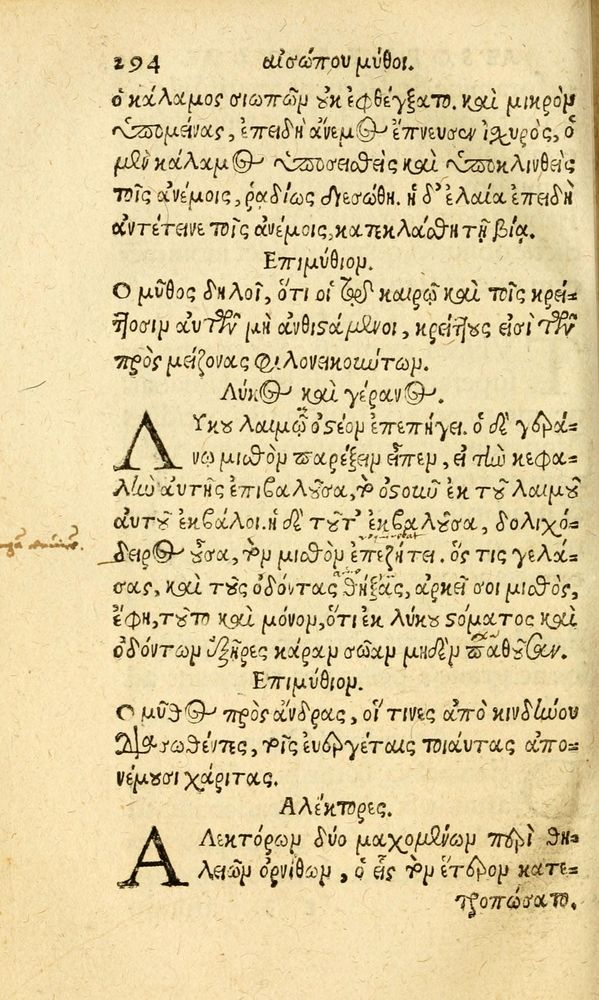 294 αἰσώπου μῦθοι.
ὁ κάλαμος σιωπῶν οὐκ ἐφθέγξατο. καὶ μικρὸν
ὑπομείνας, ἐπειδὴ ἄνεμος ἔπνευσεν ἰσχυρὸς, ὁ
μὲν κάλαμος ὑποσεισθεὶς καὶ ὑποκλινθεὶς
τοῖς ἀνέμοις, ῥαδίως διεσώθη. ἡ δ' ἐλαία ἐπειδὴ
ἀντέτεινε τοῖς ἀνέμοις, κατεκλάσθη τῇ βίᾳ.
Επιμύθιον.
Ο μῦθος δηλοῖ, ὅτι οἱ τῷ καιρῷ καὶ τοῖς κρείτ-
τοσιν αὐτῶν μὴ ἀνθιστάμενοι, κρείττους εἰσὶ τῶν
πρὸς μείζονας φιλονεικούντων.
Λύκος καὶ γέρανος.
ΛΥκου λαιμῷ ὀστέον ἐπεπήγει. ὁ δὲ γερά-
νῳ μισθὸν παρέξειν εἶπεν, εἰ τὴν κεφα-
λὴν αὐτῆς ἐπιβαλοῦσα, τὸ ὀστοῦν ἐκ τοῦ λαιμοῦ
αὐτοῦ ἐκβάλοι. ἡ δὲ τοῦτ' ἐκβαλοῦσα, δολιχό-
δειρος οὖσα, τὸν μισθὸν ἐπεζήτει. ὅς τις γελά-
σας, καὶ τοὺς ὀδόντας θήξας, ἀρκεῖ σοι μισθὸς,
ἔφη, τοῦτο καὶ μόνον, ὅτι ἐκ λύκου στόματος καὶ
ὀδόντων ἐξῆρες κάραν σῶαν μηδὲν παθοῦσαν.
Επιμύθιον.
Ο μῦθος πρὸς ἄνδρας, οἵ τινες ἀπὸ κινδύνου
διασωθέντες, τοῖς εὐεργέταις τοιαύτας ἀπο-
νέμουσι χάριτας.
Αλέκτορες.
ΑΛεκτόρων δύο μαχομένων περὶ θη-
λειῶν ὀρνίθων, ὁ εἷς τὸν ἕτερον κατε-
τροπώσατο.